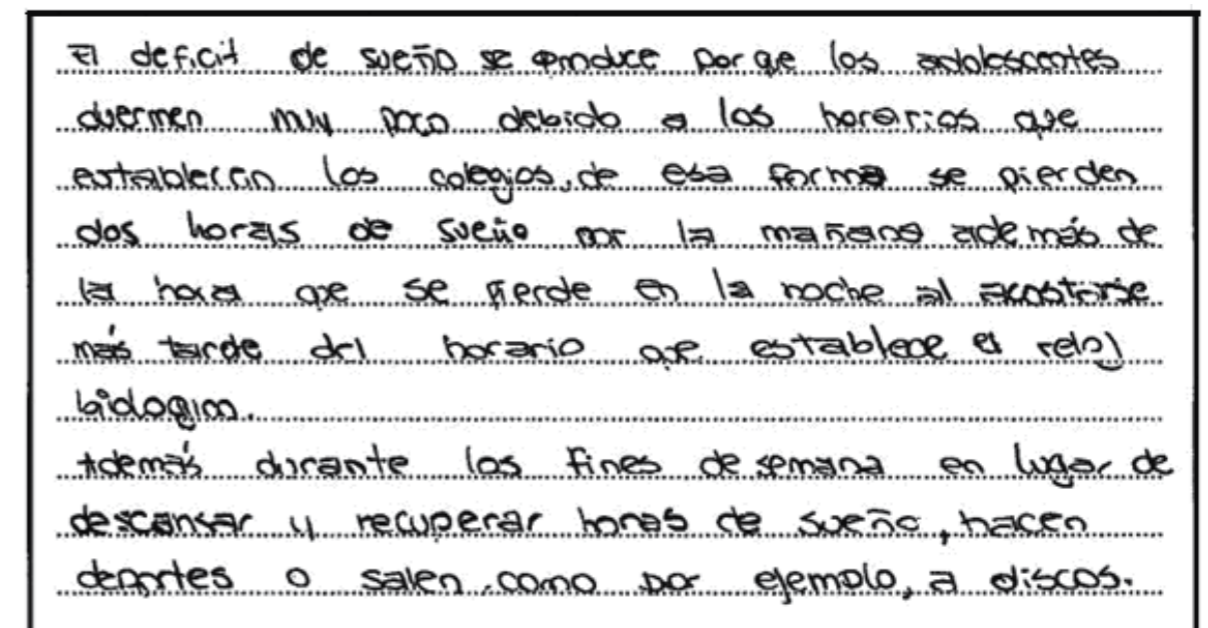 El deficit de sueño se produce porqe los adolescentes
duermen muy poco debido a los horarios que
establecen los colegios, de esa forma se pierden
dos horas de sueño por la mañana además de
la hora que se pierde en la noche al acostarse
más tarde del horario que establece el reloj
biologico.
Además durante los fines de semana en lugar de
descansar y recuperar horas de sueño, hacen
deportes o salen como por ejemplo, a discos.